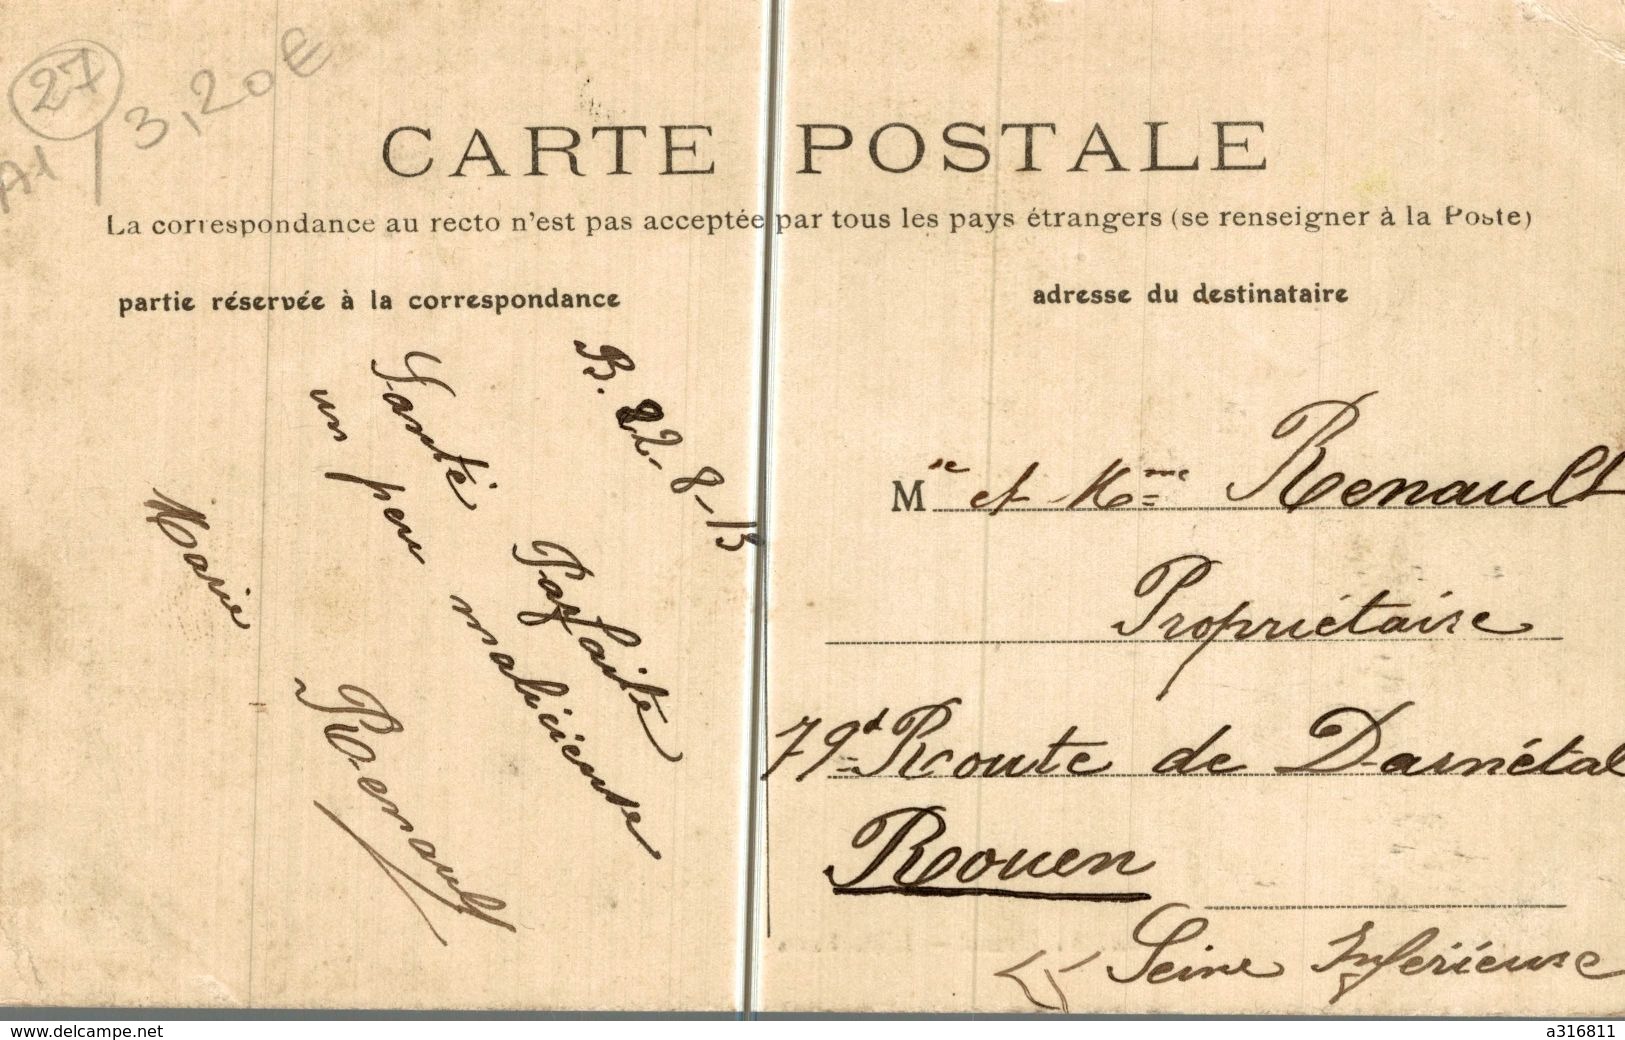 27
A1
3,20€
CARTE POSTALE
La correspondance au recto n'est pas acceptée par tous les pays étrangers (se renseigner à la Poste)
partie réservée à la correspondance
B. 22-8-13
Santé Parfaite
un peu malicieuse
Marie Renault
adresse du destinataire
M et Mme Renault
Propriétaire
79 Route de Darnétal
Rouen
Seine Inférieure
www.delcampe.net
a316811